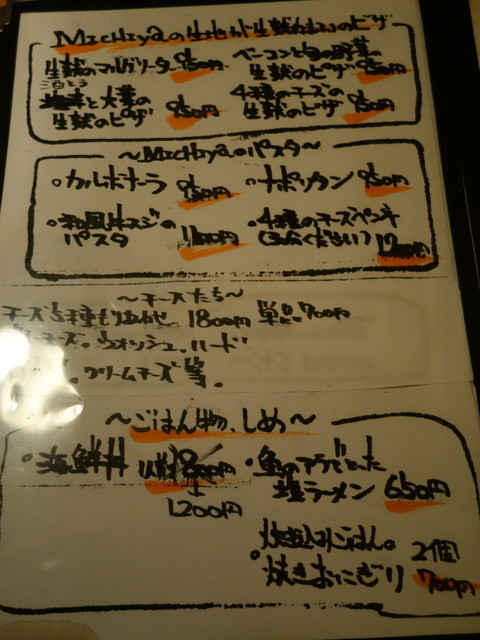 Michiyaの生地が生献かおいのピザ
生献のマルゲリータ 950円
ベーコンと旬の野菜の
生献のピザ 950円
と大葉の
生献のピザ 950円
4種のチーズの
生献のピザ 950円
～Michiyaのパスタ～
・カルボナーラ 950円
・ナポリタン 950円
・和風牛スジの
パスタ 1100円
・4種のチーズペンネ
～チーズたち～
チーズ5種もりあわせ 1800円 単品700円
チーズ、ウォッシュ、ハード
、クリームチーズ等。
～ごはん物、しめ～
・海鮮丼
1200円
・魚のアラでとった
塩ラーメン 650円
炊込みごはん。
・焼きおにぎり 2個 700円